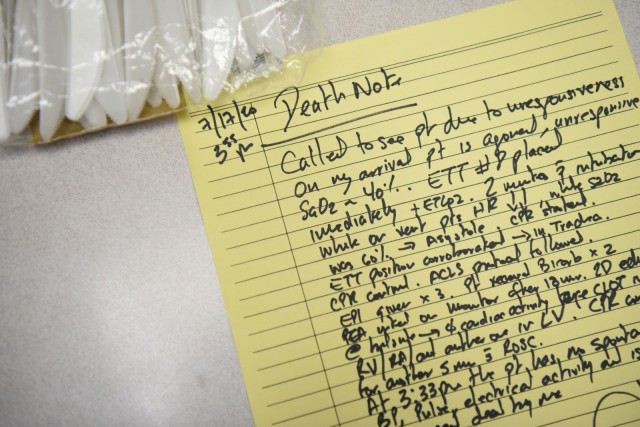 7/17/20 Death Note
3:55 pm
Called to see pt due to unresponsiveness
On my arrival pt is agonal, unresponsive
SaO2 ~ 40%. ETT # placed
immediately + ETCO2. 2 minutes intubation
while on vent pts HR ↓'d, while SaO2
was 60% → Asystole CPR started.
ETT position corroborated → in Trachea.
CPR contind. ACLS protocol followed.
EPI given x 3. pt received Bicarb x 2
PEA noted on monitor after 18 min. 2D
@ bedside → cardiac activity large CLOT
RV/RA/ and another one in LV. CPR
for another 5 min ROSC.
At 3:33 pm the pt has no
BP, Pulse, electrical activity and is
by me